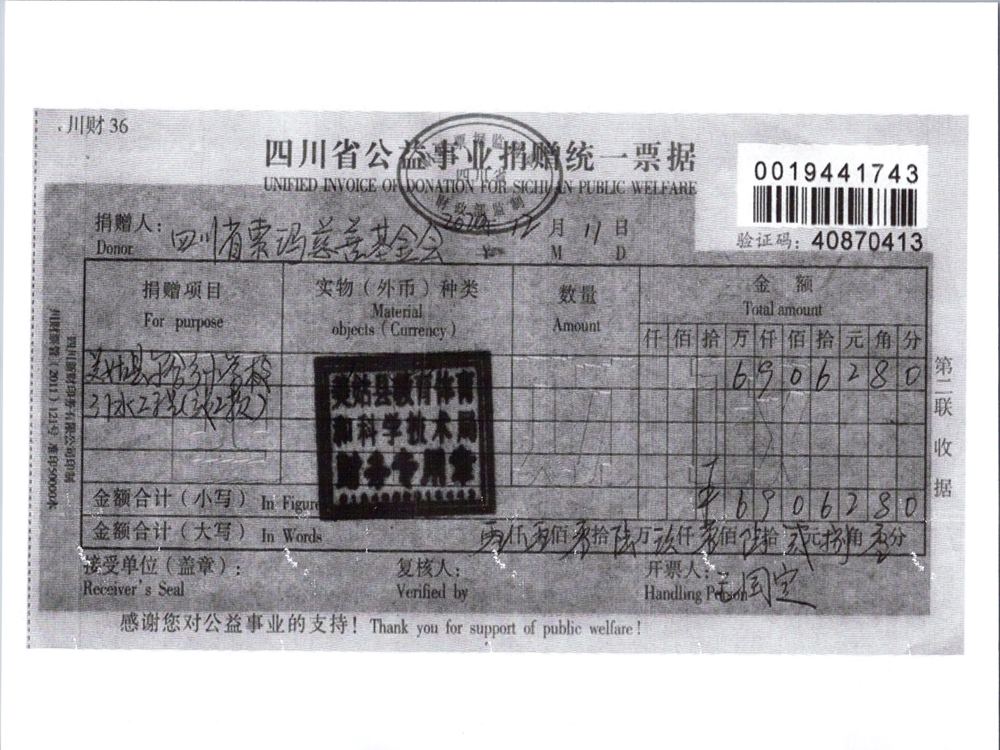 川财 36
四川省公益事业捐赠统一票据
UNIFIED INVOICE OF DONATION FOR SICHUAN PUBLIC WELFARE
四川省
财政部监制
0019441743
验证码：40870413
捐赠人：四川省索玛慈善基金会 2020年 12 月 11 日
Donor Y M D
捐赠项目 实物（外币）种类 数量 金 额
For purpose Material objects (Currency) Amount Total amount
仟 佰 拾 万 仟 佰 拾 元 角 分
美姑县 小学校 6 9 0 6 2 8 0
引水工程
美姑县教育体育
和科学技术局
财务专用章
金额合计（小写） In Figure ¥ 6 9 0 6 2 8 0
金额合计（大写） In Words 零仟零佰零拾陆万玖仟零佰陆拾贰元捌角零分
接受单位（盖章）： 复核人： 开票人：
Receiver's Seal Verified by Handling Person
感谢您对公益事业的支持！ Thank you for support of public welfare !
第二联 收据